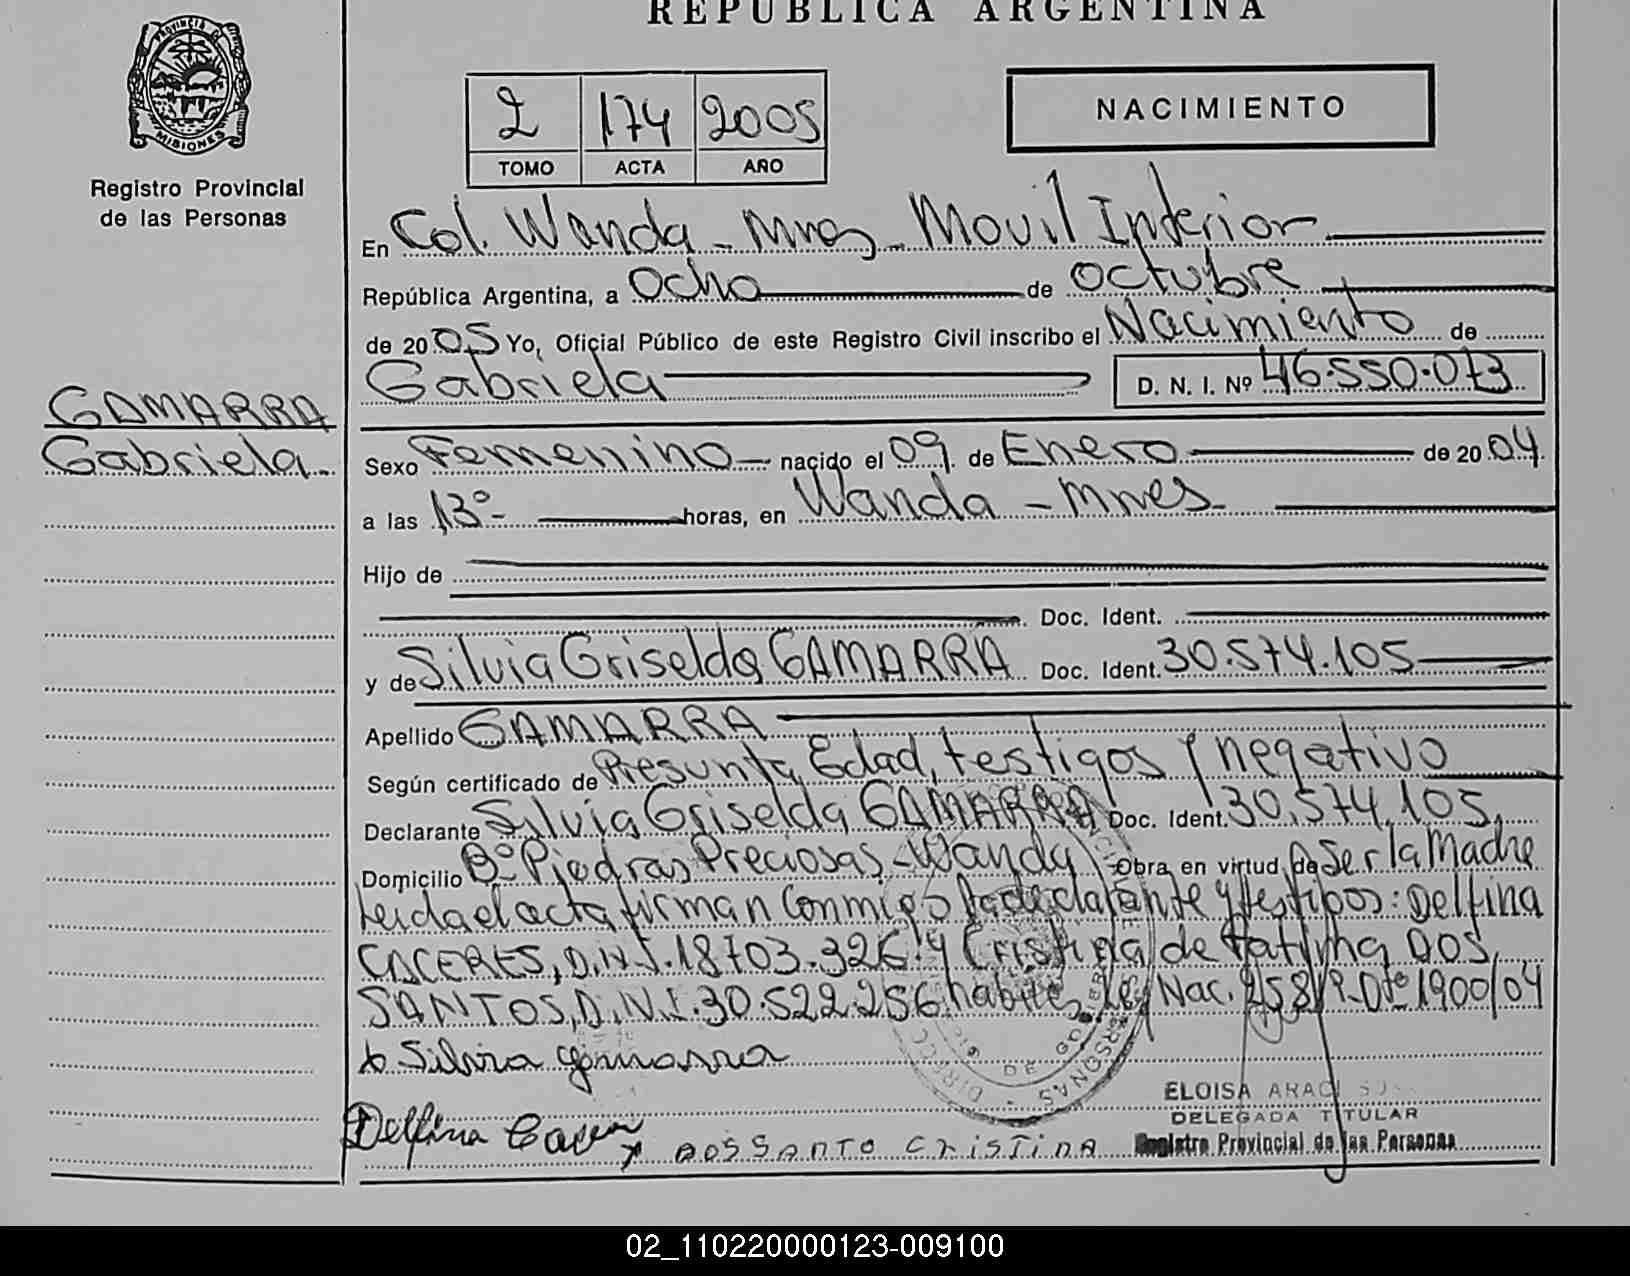 REPUBLICA ARGENTINA
PROVINCIA DE
MISIONES
Registro Provincial
de las Personas
2 174 2005
TOMO ACTA AÑO
NACIMIENTO
En Col. Wanda - Mnes - Movil Interior
República Argentina, a Ocho de octubre
de 2005 Yo, Oficial Público de este Registro Civil inscribo el Nacimiento de
Gabriela D. N. I. Nº 46.550.073
GAMARRA
Gabriela.
Sexo Femenino nacido el 09 de Enero de 2004
a las 13º horas, en Wanda - Mnes
Hijo de
Doc. Ident.
y de Silvia Griselda GAMARRA Doc. Ident. 30.574.105
Apellido GAMARRA
Según certificado de Presunta Edad, testigos y negativo
Declarante Silvia Griselda GAMARRA Doc. Ident. 30.574.105,
Domicilio Bº Piedras Preciosas - Wanda Obra en virtud de Ser la Madre
Leida el acta firman Conmigo la declarante y testigos: Delfina
CACERES, D.N.I. 18.703.326 y Cristina de Fatima DOS
SANTOS, D.N.I. 30.522.256 habites Ley Nac. Dto 1900/04
Silvia gamarra
ELOISA
DELEGADA TITULAR
Delfina Caceres x DOSSANTO CRISTINA Registro Provincial de las Personas
02_110220000123-009100